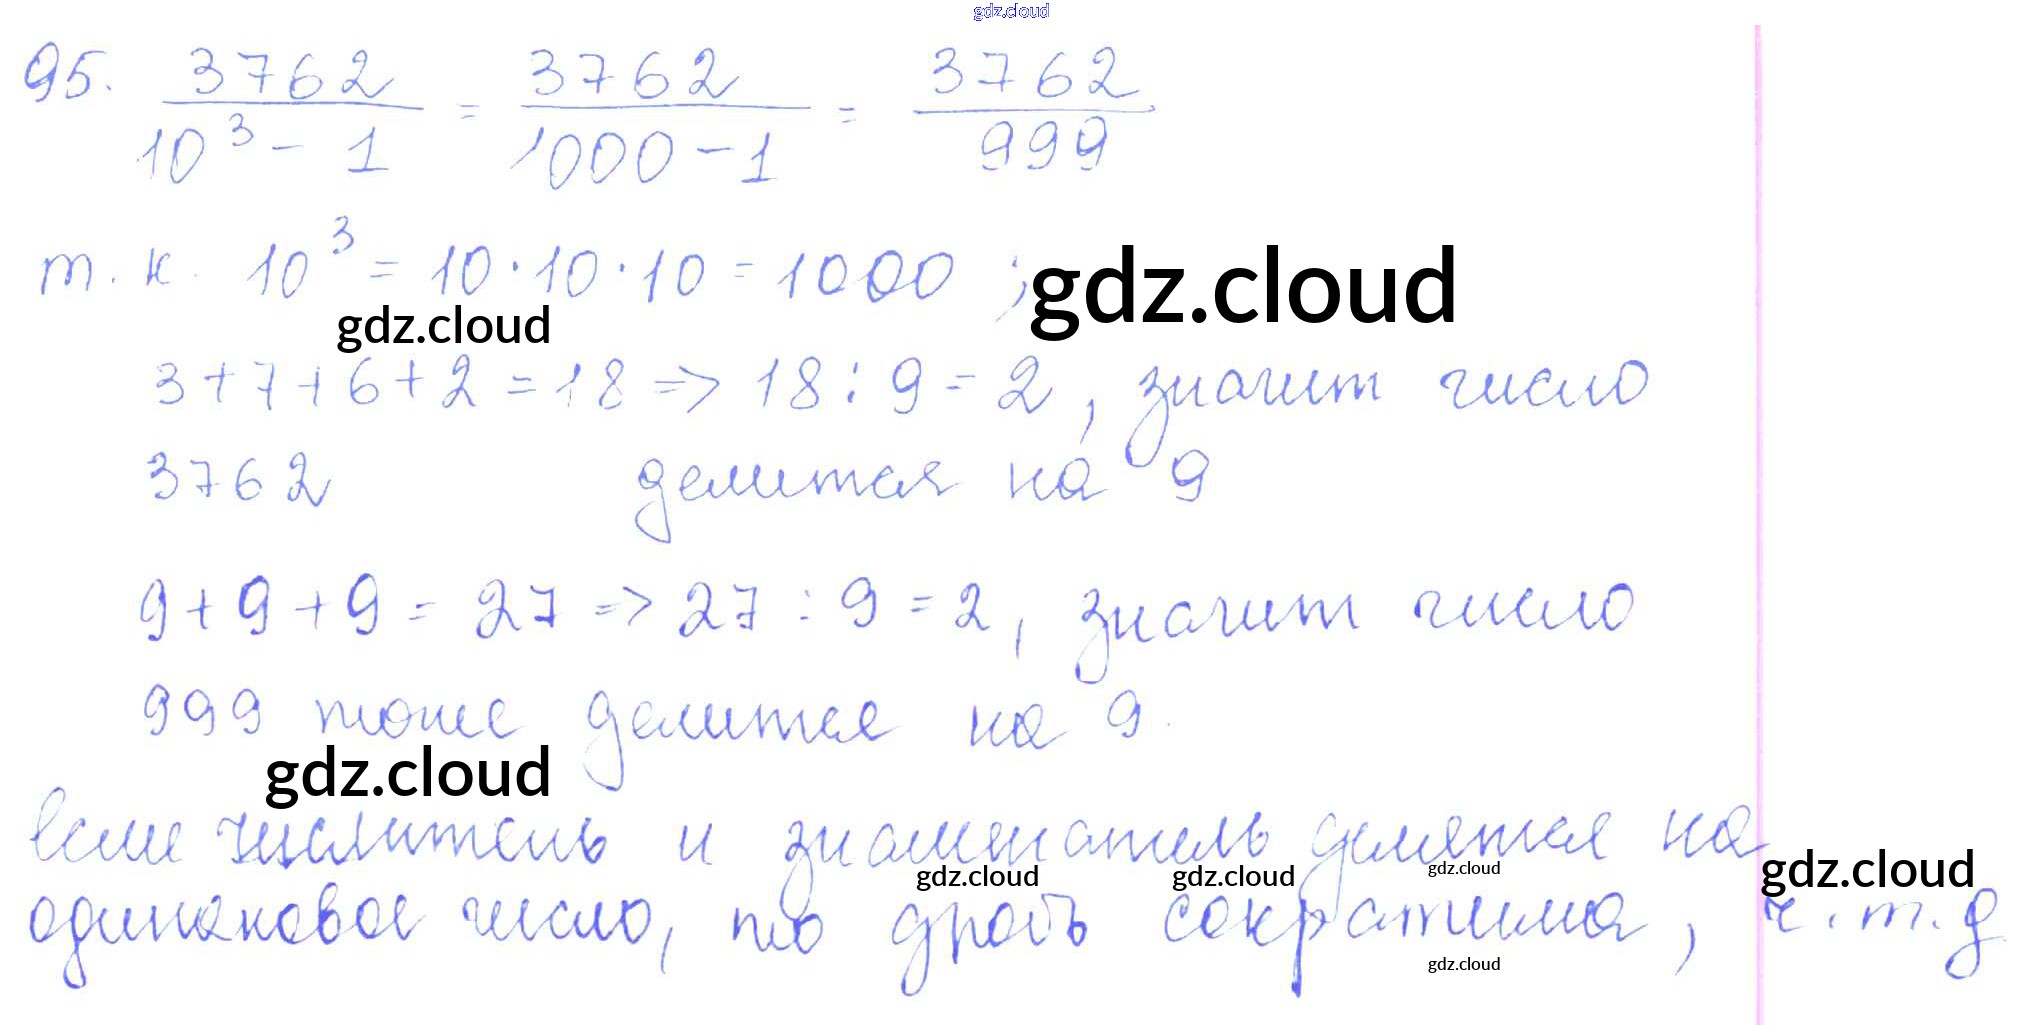 gdz.cloud
95. 3762/10³ - 1 = 3762/1000 - 1 = 3762/999
т. к. 10³ = 10 · 10 · 10 = 1000 ;
gdz.cloud
gdz.cloud
3 + 7 + 6 + 2 = 18 => 18 : 9 = 2 , значит число
3762 делится на 9
9 + 9 + 9 = 27 => 27 : 9 = 2 , значит число
999 тоже делится на 9.
gdz.cloud
если числитель и знаменатель делятся на
gdz.cloud gdz.cloud gdz.cloud gdz.cloud
одинаковое число, то дробь сократима, ч.т.д
gdz.cloud